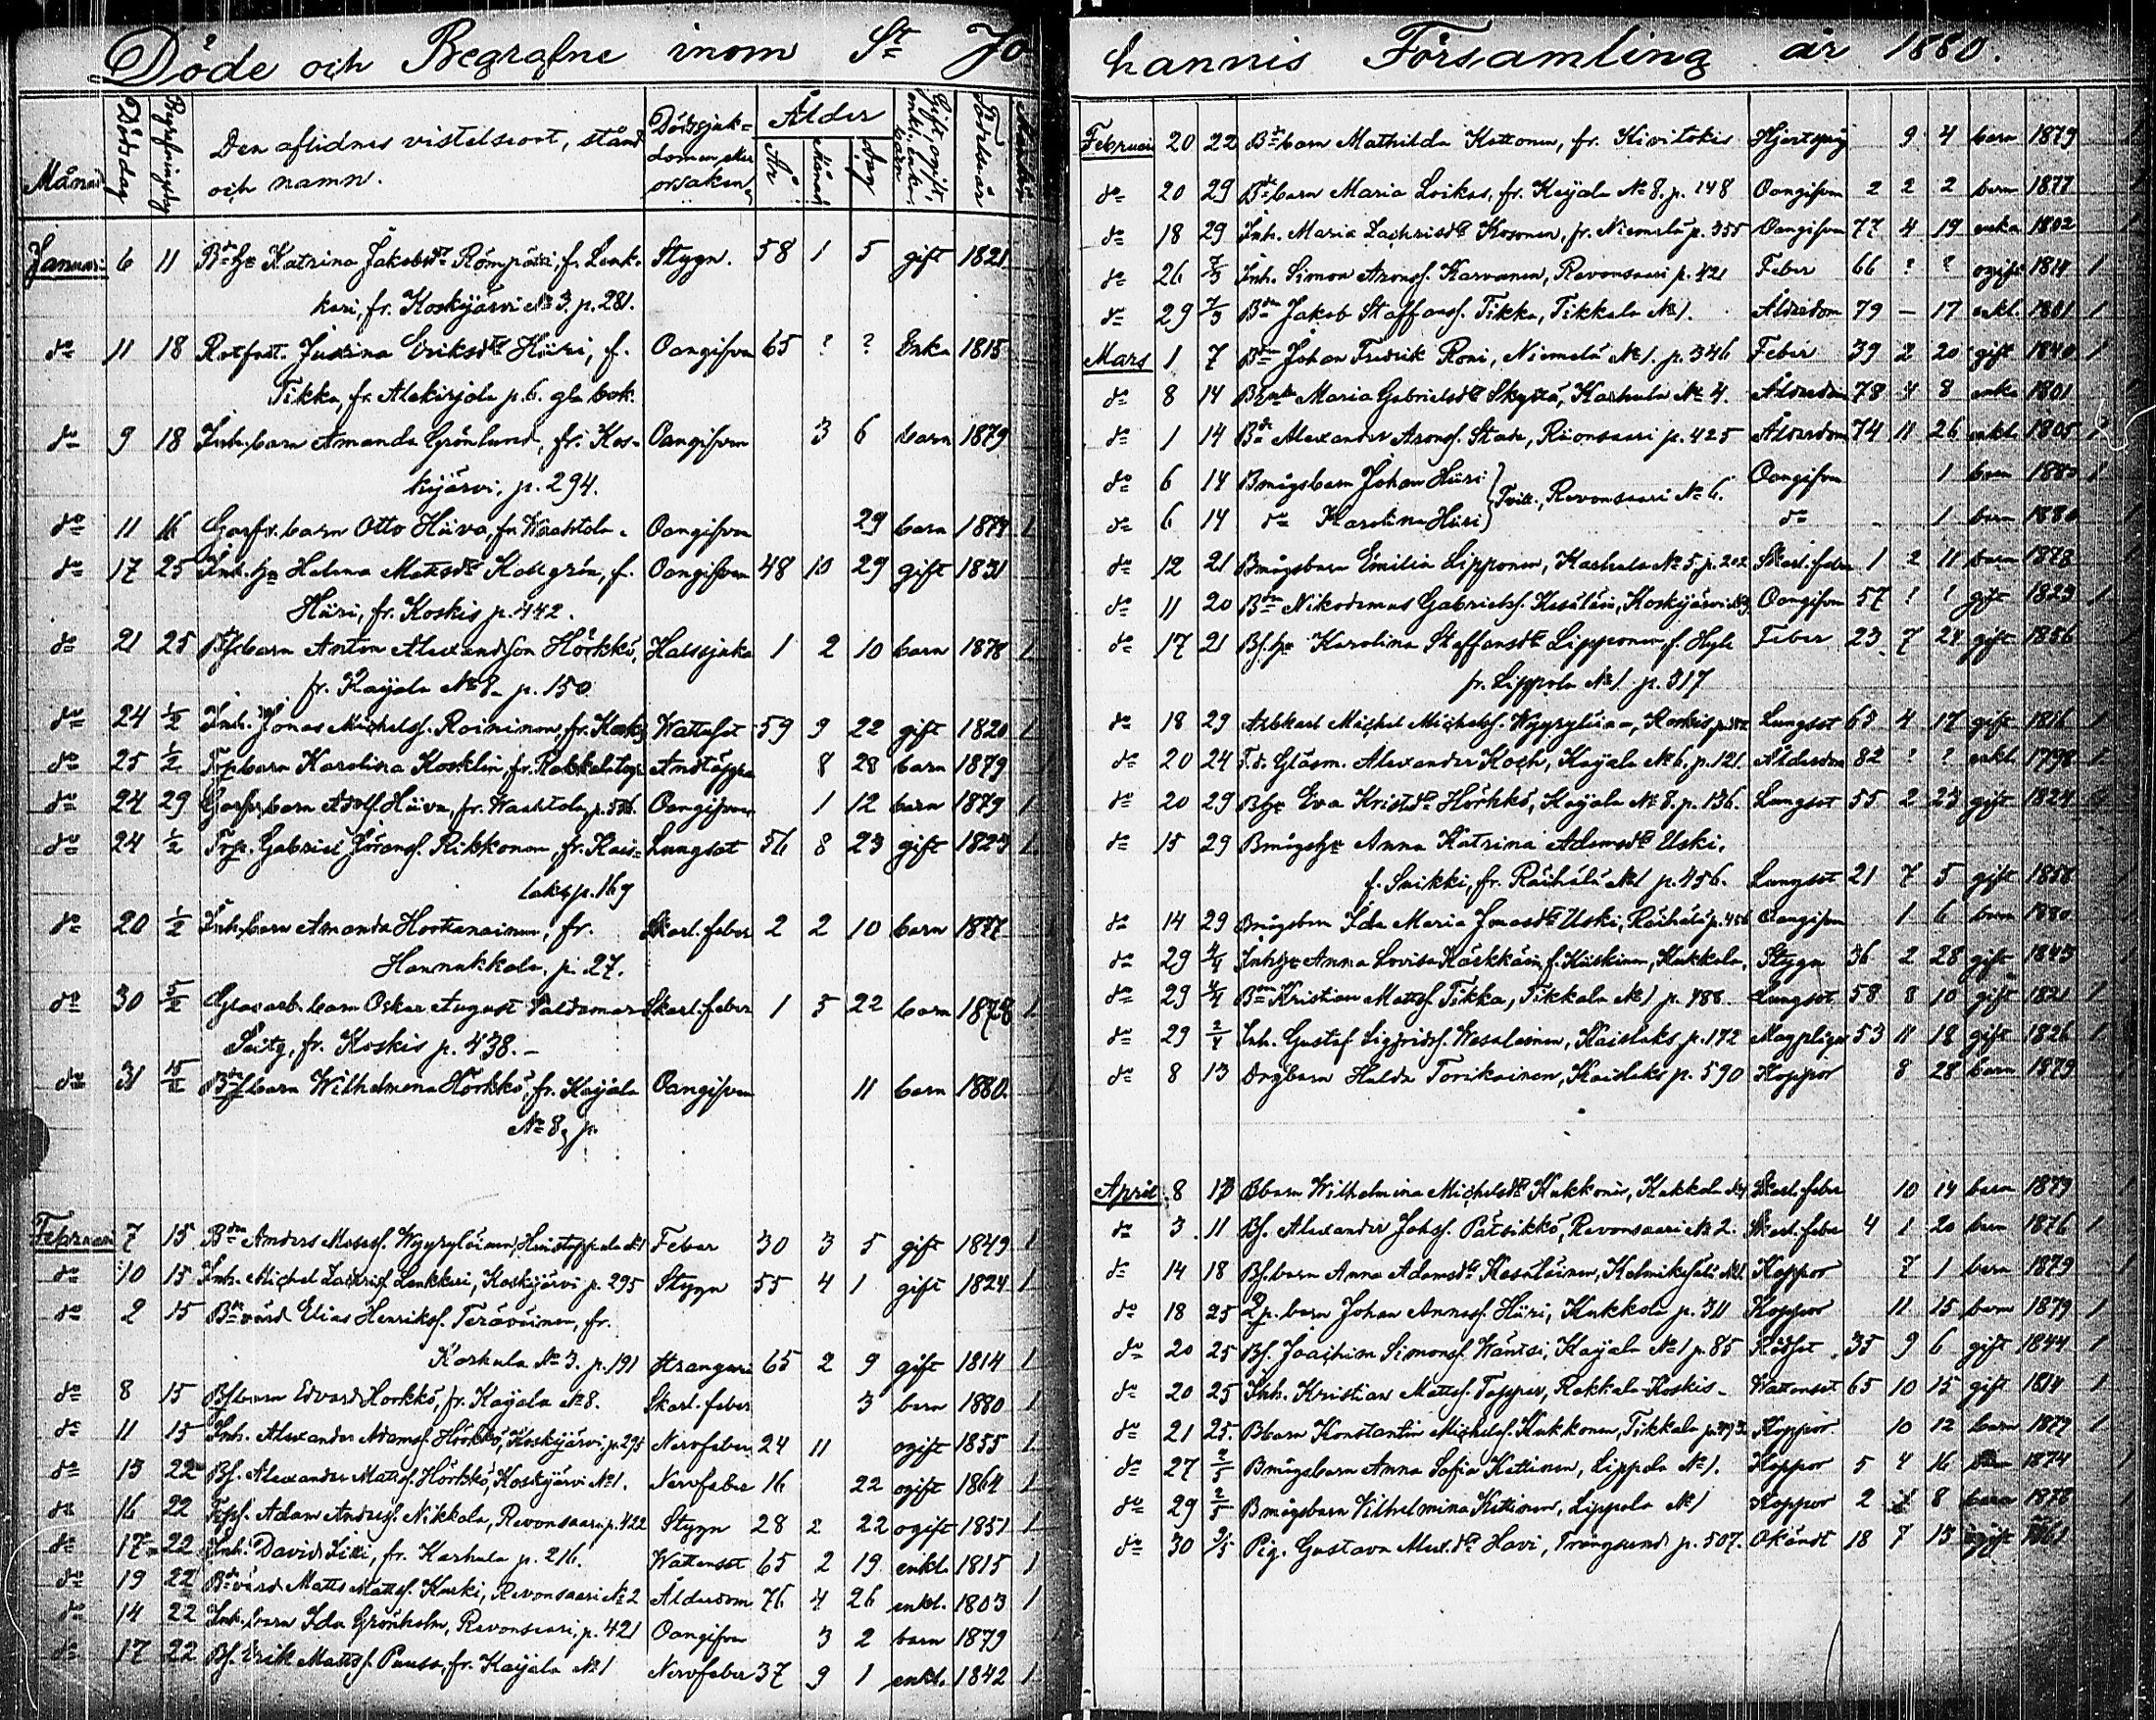 Döde och Begrafne inom St Jo
Månad Dödsdag Begrafningsdag Den aflidnes vistelseort, stånd och namn. Dödssjukdomen eller orsaken Ålder År Månad dag Gift, ogift, enkl. enka, barn Födelseår
Januari 6 11 Bde h. Katrina Jakobsdr Römpötti, f. Lenk- Stygn. 58 1 5 gift 1821
keri, fr. Koskijärvi No 3. p. 281.
do 11 18 Justina Eriksdr Hüri, f. Oangifven 65 ? ? Enka 1815
Tikka, fr. Alakirjola p. 6. gla bok.
do 9 18 Inh. barn Amanda Grönlund, fr. Kos- Oangifven 3 6 barn 1879
kijärvi, p. 294.
do 11 16 barn Otto Hüva, fr. Waahtola. Oangifven 29 barn 1879 1
do 17 25 Inh. h. Helena Mattsdr f. Oangifven 48 10 29 gift 1831
Hüri, fr. Koskis p. 442.
do 21 25 Bf. barn Anton Alexandson Hörkkö, Halssjuka 1 2 10 barn 1878 1
fr. Kaijala No 8. p. 150
do 24 1/2 Inh. Jonas Michelsf. Roininen, fr. Wattusot 59 9 22 gift 1820 1
do 25 1/2 barn Karolina Kosklin, fr. Andtäppa 8 28 barn 1879 1
do 24 29 barn Adolf Hüva, fr. Waahtola, p. Oangifven 1 12 barn 1879 1
do 24 1/2 Torp. Gabriel Göransf. Rikkonen, fr. Kais- Lungsot 56 8 23 gift 1823 1
laks p. 169
do 20 1/2 Inh. barn Amanda fr. Skarl. feber 2 2 10 barn 1877
Hannukkala, p. 27.
do 30 5/2 Glasarb. barn Oskar August Valdemar Skarl. feber 1 5 22 barn 1878 1
Seitz, fr. Koskis p. 438. –
do 31 15/2 barn Wilhelmina Hörkkö, fr. Kaijala Oangifven 11 barn 1880.
No 8, p.
Februari 7 15 Bde Anders Wyyryläinen No 1 Feber 30 3 5 gift 1849 1
do 10 15 Inh. Michel Zachrisf. Lenkkeri, Koskijärvi p. 295 Stygn 55 4 1 gift 1824 1
do 2 15 Bde värd Elias Henriksf. Teräväinen, fr.
Karhula No 3. p. 191 Stranguri 65 2 9 gift 1814 1
do 8 15 Bf. barn Edvard Hörkkö, fr. Kaijala No 8. Skarl. feber 3 barn 1880 1
do 11 15 Inh. Alexander Adamsf. Hörkkö, Koskijärvi, p. 295 Nervfeber 24 11 ogift 1855 1
do 13 22 Bf. Alexander Mattsf. Hörkkö, Koskijärvi No 1. Nervfeber 16 22 ogift 1864 1
do 16 22 Adam Andersf. Nikkola, Revonsaari p. 422 Stygn 28 2 22 ogift 1851 1
do 17 22 Inh. David fr. Karhula p. 216. Wattensot 65 2 19 enkl. 1815 1
do 19 22 Bde värd Matts Mattsf. Kurki, Revonsaari No 2 Ålderdom 76 4 26 enkl. 1803 1
do 14 22 Inh. barn Ida Grönholm, Revonsaari, p. 421 Oangifven 3 2 barn 1879
do 17 22 Bf. Erik Mattsf. Puusa, fr. Kaijala No 1 Nervfeber 37 9 1 enkl. 1842 1
hannis Församling år 1880.
Februari 20 22 Bde barn Mathilda Kettonen, fr. Kivitokis 9 4 barn 1879
do 20 29 Bde barn Maria Loikas, fr. Kaijala No 8. p. 148 Oangifven 2 2 2 barn 1877
do 18 29 Inh. Maria Zachrisdr Kosonen, fr. Niemelä p. 355 Oangifven 77 4 19 enka 1802
do 26 7/3 Inh. Simon Aronsf. Karvanen, Revonsaari p. 421 Feber 66 ? ? ogift 1814 1
do 29 7/3 Bde Jakob Staffansf. Tikka, Tikkala No 1. Ålderdom 79 – 17 enkl. 1801 1
Mars 1 7 Bde Johan Fredrik Roni, Niemelä No 1. p. 346 Feber 39 2 20 gift 1840 1
do 8 14 Maria Gabrielsdr Skyttä, Karhula No 4. Ålderdom 78 4 8 enka 1801
do 1 14 Bde Alexander Aronsf. p. 425 Ålderdom 74 11 26 enkl. 1805
do 6 14 Bmågsbarn Johan Hüri Tvill., Revonsaari No 6. Oangifven 1 barn 1880 1
do 6 14 do Karolina Hüri do 1 barn 1880
do 12 21 Bmågsbarn Emilia Lipponen, Karhula No 5, p. 202 Skarl. feber 1 2 11 barn 1878
do 11 20 Bde Nikodemus Gabrielsf. Koskijärvi Oangifven 57 ? ? gift 1823 1
do 17 21 Bf. h. Karolina Staffansdr Lipponen, f. Feber 23 7 24 gift 1856
fr. Lippola No 1. p. 317
do 18 29 Arbkarl Michel Michelsf. Wyyryläinen, Koskis Lungsot 63 4 17 gift 1816 1
do 20 24 F. d. Glasm. Alexander Koch, Kaijala No 6. p. 121. Ålderdom 82 ? ? enkl. 1798 1
do 20 29 Eva Kristdr Hörkkö, Kaijala No 8. p. 136. Lungsot 55 2 23 gift 1824
do 15 29 Bmågsh. Anna Katrina Adamsdr Uski,
f. Suikki, fr. Räihälä No 1 p. 456. Lungsot 21 7 5 gift 1858
do 14 29 Bmågsbarn Ida Maria Jonasdr Uski, Räihälä p. 456 Oangifven 1 6 barn 1880
do 29 4/4 Anna Lovisa Kärkkäin, f. Kukkola, Stygn 36 2 28 gift 1843
do 29 4/4 Bde Kristian Mattsf. Tikka, Tikkala No 1 p. 488. Lungsot 58 8 10 gift 1821 1
do 29 2/4 Inh. Gustaf Sigfridsf. Wesalainen, Kaislaks, p. 172 Magplågor 53 11 18 gift 1826 1
do 8 13 barn Hulda Torikainen, Kaislaks p. 590 Koppor 8 28 barn 1879
April 8 13 Bbarn Wilhelmina Michelsdr Kukkonen, Kukkola Skarl. feber 10 14 barn 1879
do 3 11 Bf. Alexander Johsf. Pätsikkö, Revonsaari No 2. Skarl. feber 4 1 20 barn 1876 1
do 14 18 Bf. barn Anna Adamsdr Kesäläinen, Koppor 7 1 barn 1879
do 18 25 barn Johan Hüri, Kukkola p. 311 Koppor 11 15 barn 1879 1
do 20 25 Bf. Joachim Simonsf. Wäntsi, Kaijala No 1 p. 85 Rödsot 35 9 6 gift 1844 1
do 20 25 Inh. Kristian Mattsf. Topper, Rokkala-Koskis – Wattensot 65 10 15 gift 1814 1
do 21 25. Bbarn Konstantin Michelsf. Kukkonen, Tikkala Koppor. 10 12 barn 1879 1
do 27 2/5 Bmågsbarn Anna Sofia Kettinen, Lippola No 1. Koppor 5 4 16 barn 1874
do 29 2/5 Bmågsbarn Wilhelmina Kettinen, Lippola No 1 Koppor 2 8 barn 1878
do 30 Pig. Gustava Alex.dr Havi, Trångsund p. 507. Okändt 18 7 13 ogift 1861